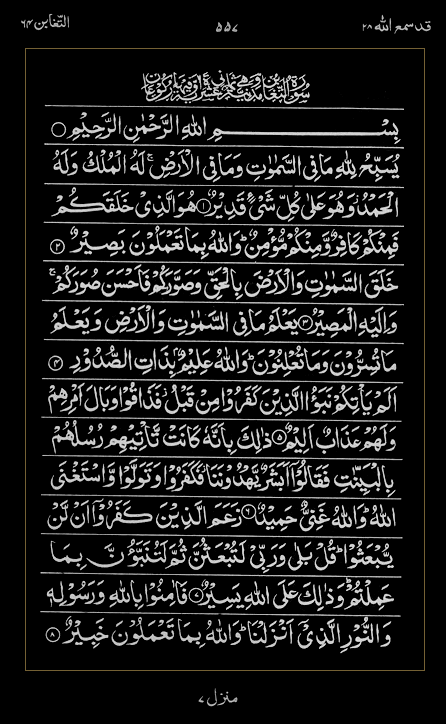 قد سمع الله ٢٨
٥٥٧
التّغابن ٦٤
سُوْرَةُ التَّغَابُنِ مَدَنِيَّةٌ وَّهِيَ ثَمَانِيَ عَشْرَةَ اٰيَةً وَّفِيْهَا رُكُوْعَانِ
بِسْــــــــــمِ اللّٰهِ الرَّحْمٰنِ الرَّحِيْمِ ۝
يُسَبِّحُ لِلّٰهِ مَا فِى السَّمٰوٰتِ وَمَا فِى الْاَرْضِ ۚ لَهُ الْمُلْكُ وَلَهُ
الْحَمْدُ ۫ وَهُوَ عَلٰى كُلِّ شَىْءٍ قَدِيْرٌ ۝١ هُوَ الَّذِىْ خَلَقَكُمْ
فَمِنْكُمْ كَافِرٌ وَّمِنْكُمْ مُّؤْمِنٌ ؕ وَاللّٰهُ بِمَا تَعْمَلُوْنَ بَصِيْرٌ ۝٢
خَلَقَ السَّمٰوٰتِ وَالْاَرْضَ بِالْحَقِّ وَصَوَّرَكُمْ فَاَحْسَنَ صُوَرَكُمْ ۚ
وَاِلَيْهِ الْمَصِيْرُ ۝٣ يَعْلَمُ مَا فِى السَّمٰوٰتِ وَالْاَرْضِ وَيَعْلَمُ
مَا تُسِرُّوْنَ وَمَا تُعْلِنُوْنَ ؕ وَاللّٰهُ عَلِيْمٌۢ بِذَاتِ الصُّدُوْرِ ۝٤
اَلَمْ يَاْتِكُمْ نَبَؤُا الَّذِيْنَ كَفَرُوْا مِنْ قَبْلُ ؗ فَذَاقُوْا وَبَالَ اَمْرِهِمْ
وَلَهُمْ عَذَابٌ اَلِيْمٌ ۝٥ ذٰلِكَ بِاَنَّهٗ كَانَتْ تَّاْتِيْهِمْ رُسُلُهُمْ
بِالْبَيِّنٰتِ فَقَالُوْۤا اَبَشَرٌ يَّهْدُوْنَنَا ؗ فَكَفَرُوْا وَتَوَلَّوْا وَّاسْتَغْنَى
اللّٰهُ ؕ وَاللّٰهُ غَنِىٌّ حَمِيْدٌ ۝٦ زَعَمَ الَّذِيْنَ كَفَرُوْۤا اَنْ لَّنْ
يُّبْعَثُوْا ؕ قُلْ بَلٰى وَرَبِّىْ لَتُبْعَثُنَّ ثُمَّ لَتُنَبَّؤُنَّ بِمَا
عَمِلْتُمْ ؕ وَذٰلِكَ عَلَى اللّٰهِ يَسِيْرٌ ۝٧ فَاٰمِنُوْا بِاللّٰهِ وَرَسُوْلِهٖ
وَالنُّوْرِ الَّذِىْۤ اَنْزَلْنَا ؕ وَاللّٰهُ بِمَا تَعْمَلُوْنَ خَبِيْرٌ ۝٨
منزل ٧